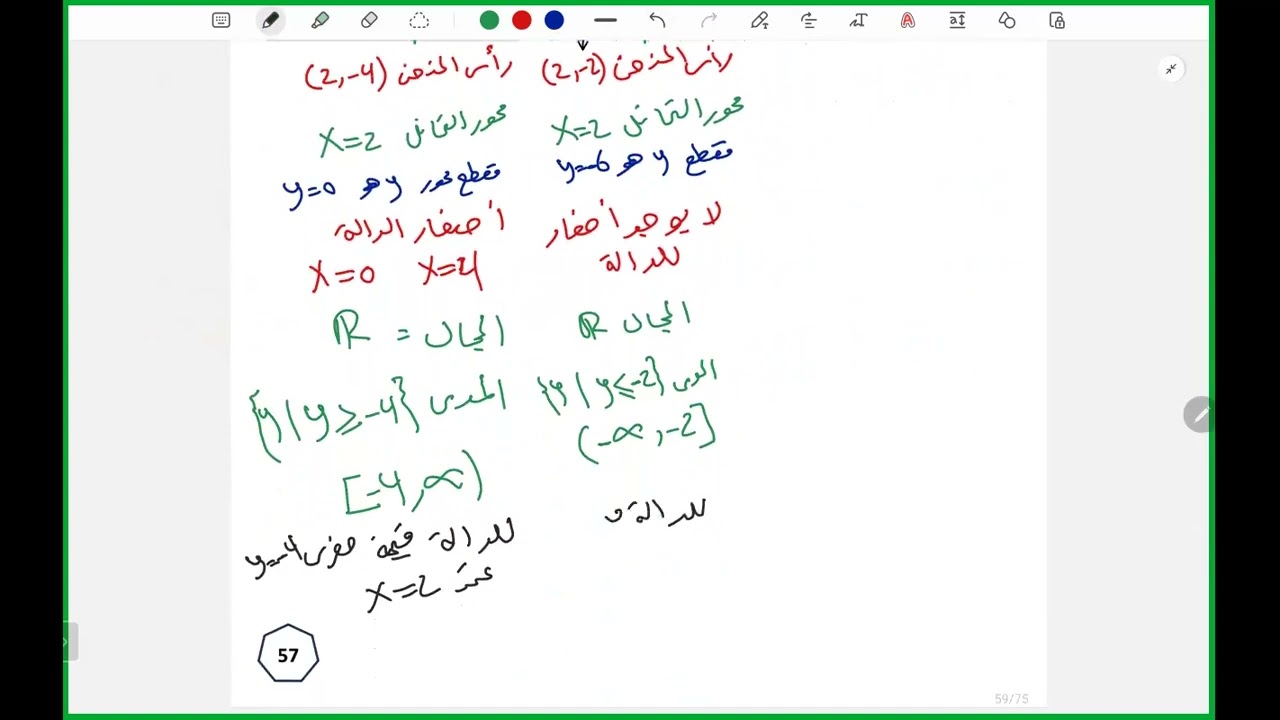 رأس المنحنى (2,-2)
محور التماثل X=2
مقطع y هو y=-6
لا يوجد أصفار
للدالة
المجال R
المدى {y | y≤-2}
(-∞,-2]
للدالة
رأس المنحنى (2,-4)
محور التماثل X=2
مقطع محور y هو y=0
أصفار الدالة
X=0 X=4
المجال = R
المدى {y | y≥-4}
[-4,∞)
للدالة قيمة صغرى y=-4
عند X=2
57
59/75